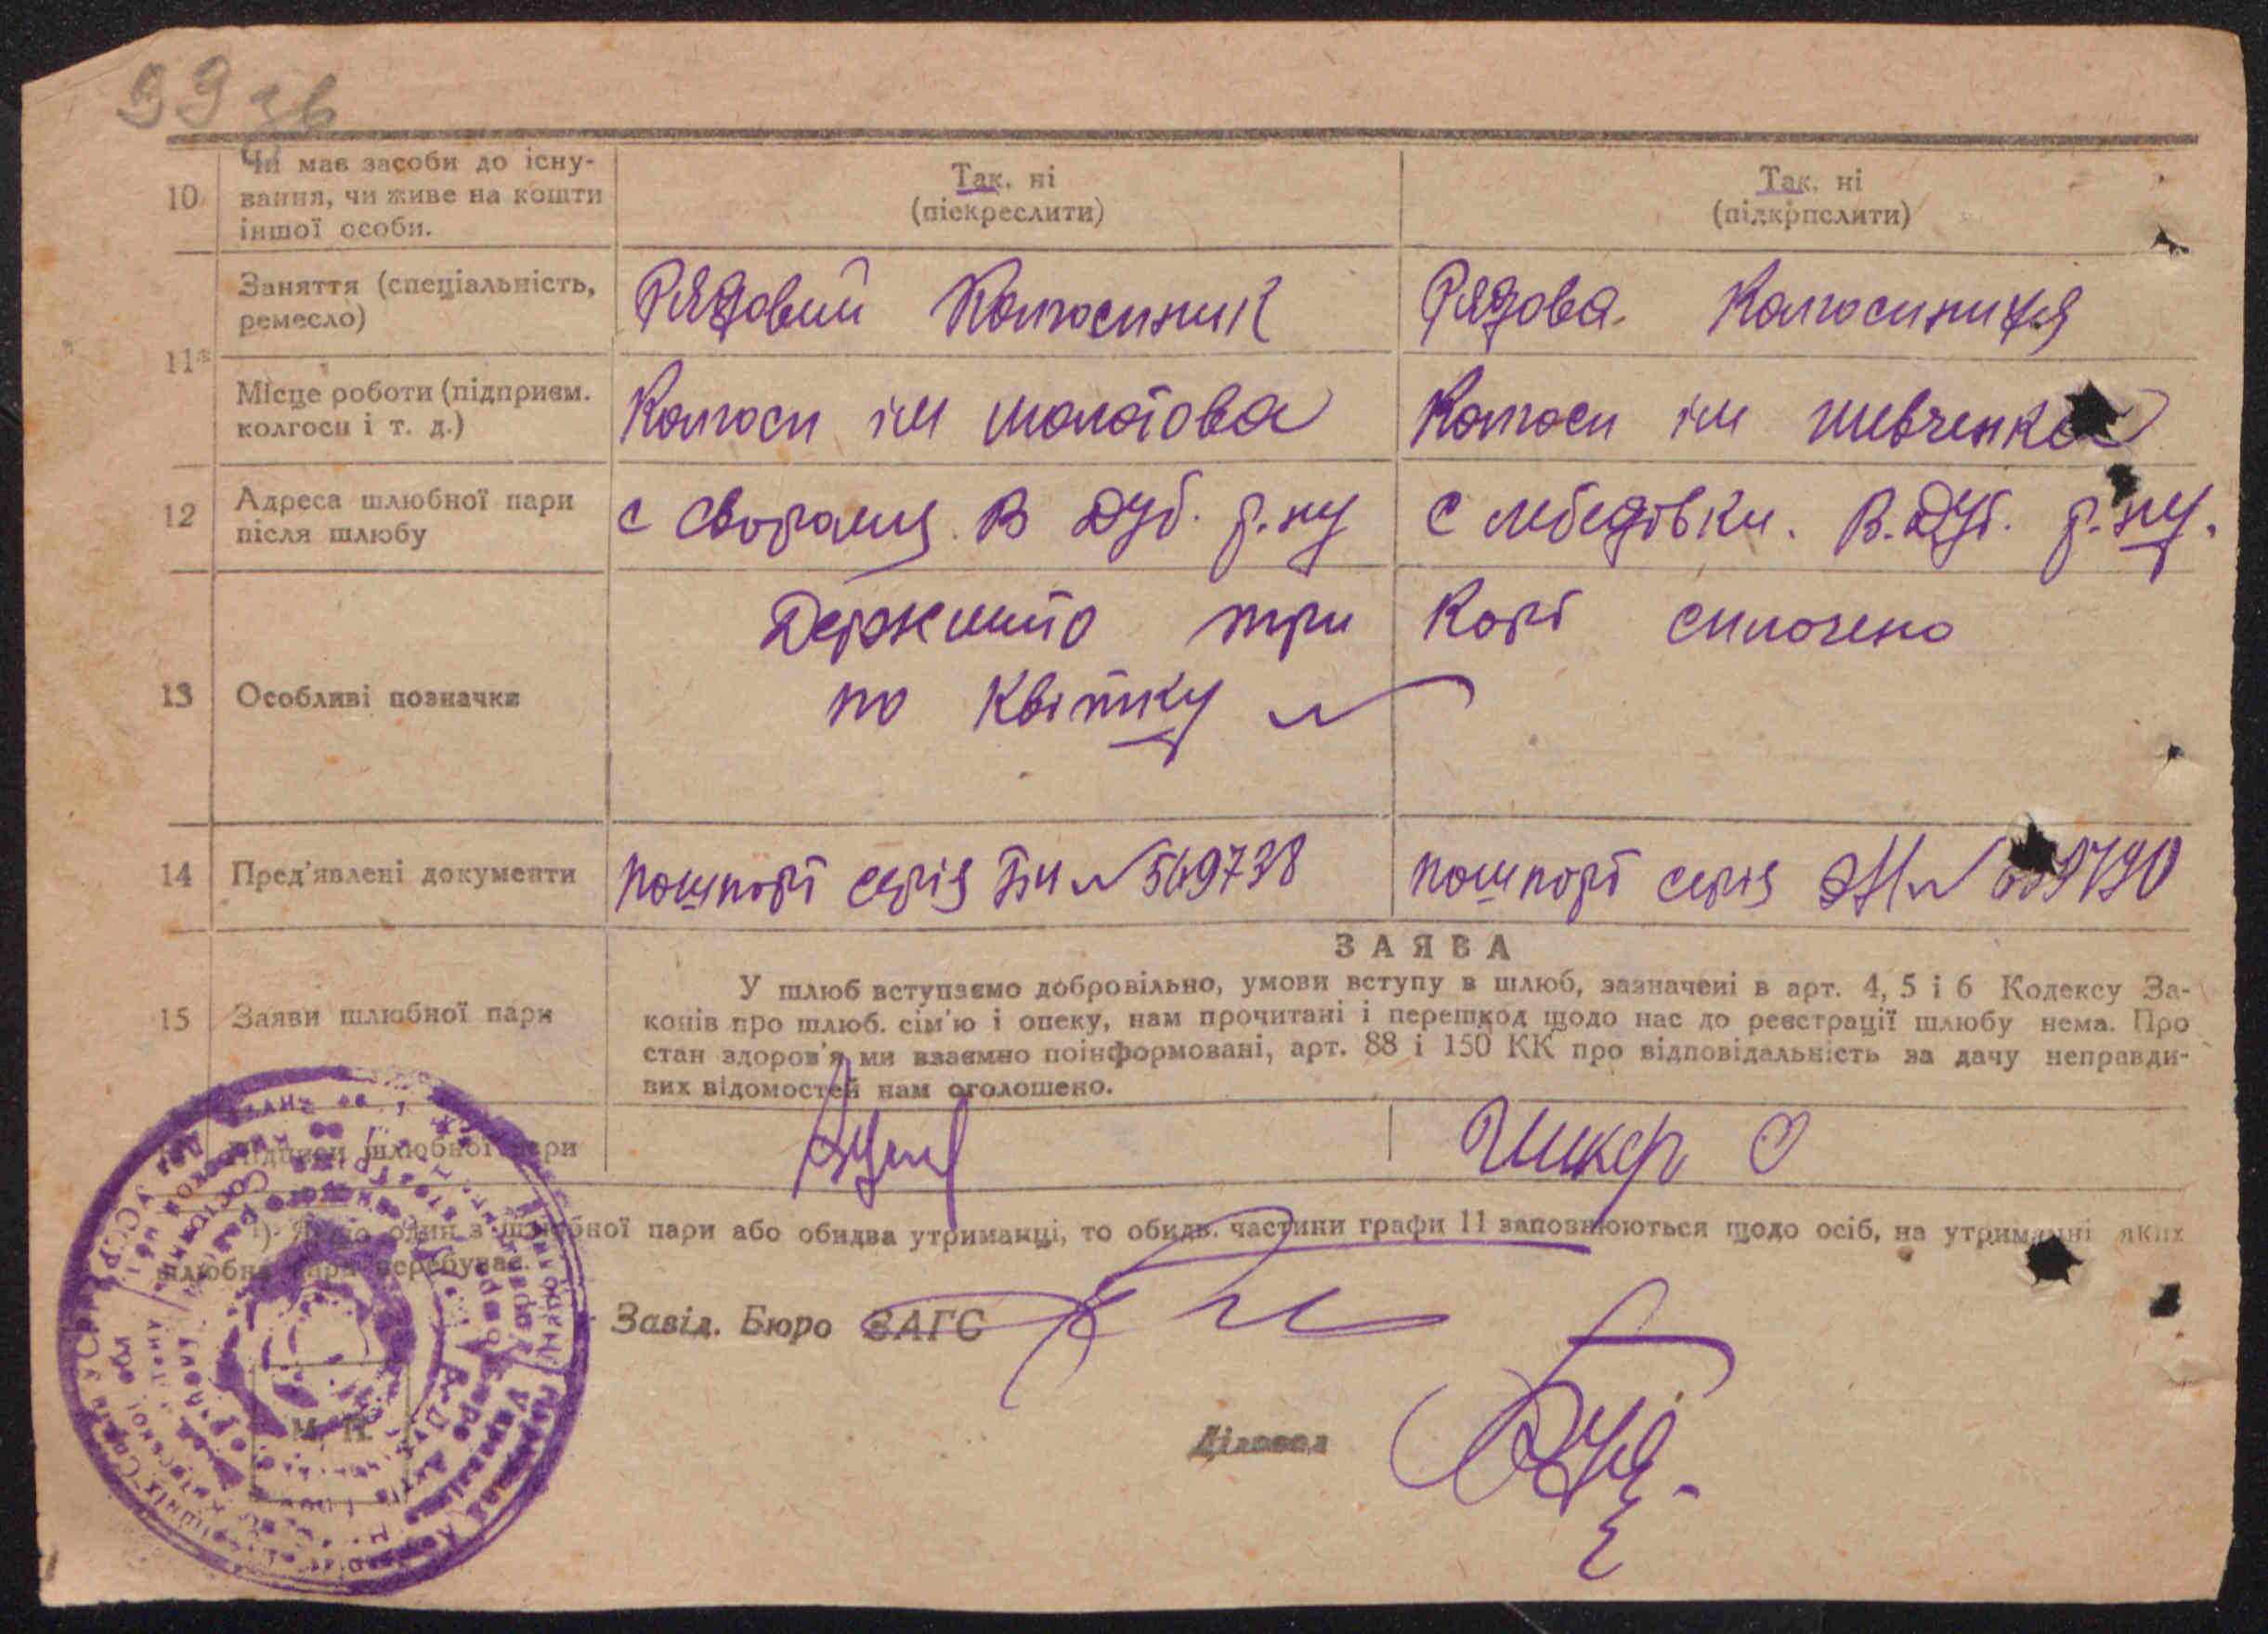 99 зв
10 Чи має засоби до існування, чи живе на кошти іншої особи.
Так, ні
(піекреслити)
Так, ні
(підкрпслити)
11
Заняття (спеціальність, ремесло)
Рядовий Колгоспник
Рядова. Колгоспниця
Місце роботи (підприєм. колгосп і т. д.)
Колгосп ім молотова
Колгосп ім шевченка
12 Адреса шлюбної пари після шлюбу
с В Дуб. р.ну
с лебедівки. В. Дуб. р.ну.
13 Особливі позначки
Держмито три карб сплочено
по квітку
14 Пред'явлені документи
пошпорт серія № 549738
пошпорт серія
15 Заяви шлюбної пари
ЗАЯВА
У шлюб вступаємо добровільно, умови вступу в шлюб, зазначені в арт. 4, 5 і 6 Кодексу За-
конів про шлюб. сім'ю і опеку, нам прочитані і перешкод щодо нас до реєстрації шлюбу нема. Про
стан здоров'я ми взаємно поінформовані, арт. 88 і 150 КК про відповідальність за дачу неправди-
вих відомостей нам оголошено.
Підписи шлюбної пари
¹) Якщо один з шлюбної пари або обидва утриманці, то обидв. частини графи 11 заповнюються щодо осіб, на утриманні яких
шлюбна пара перебуває.
Завід. Бюро ЗАГС
Діловод
М. П.